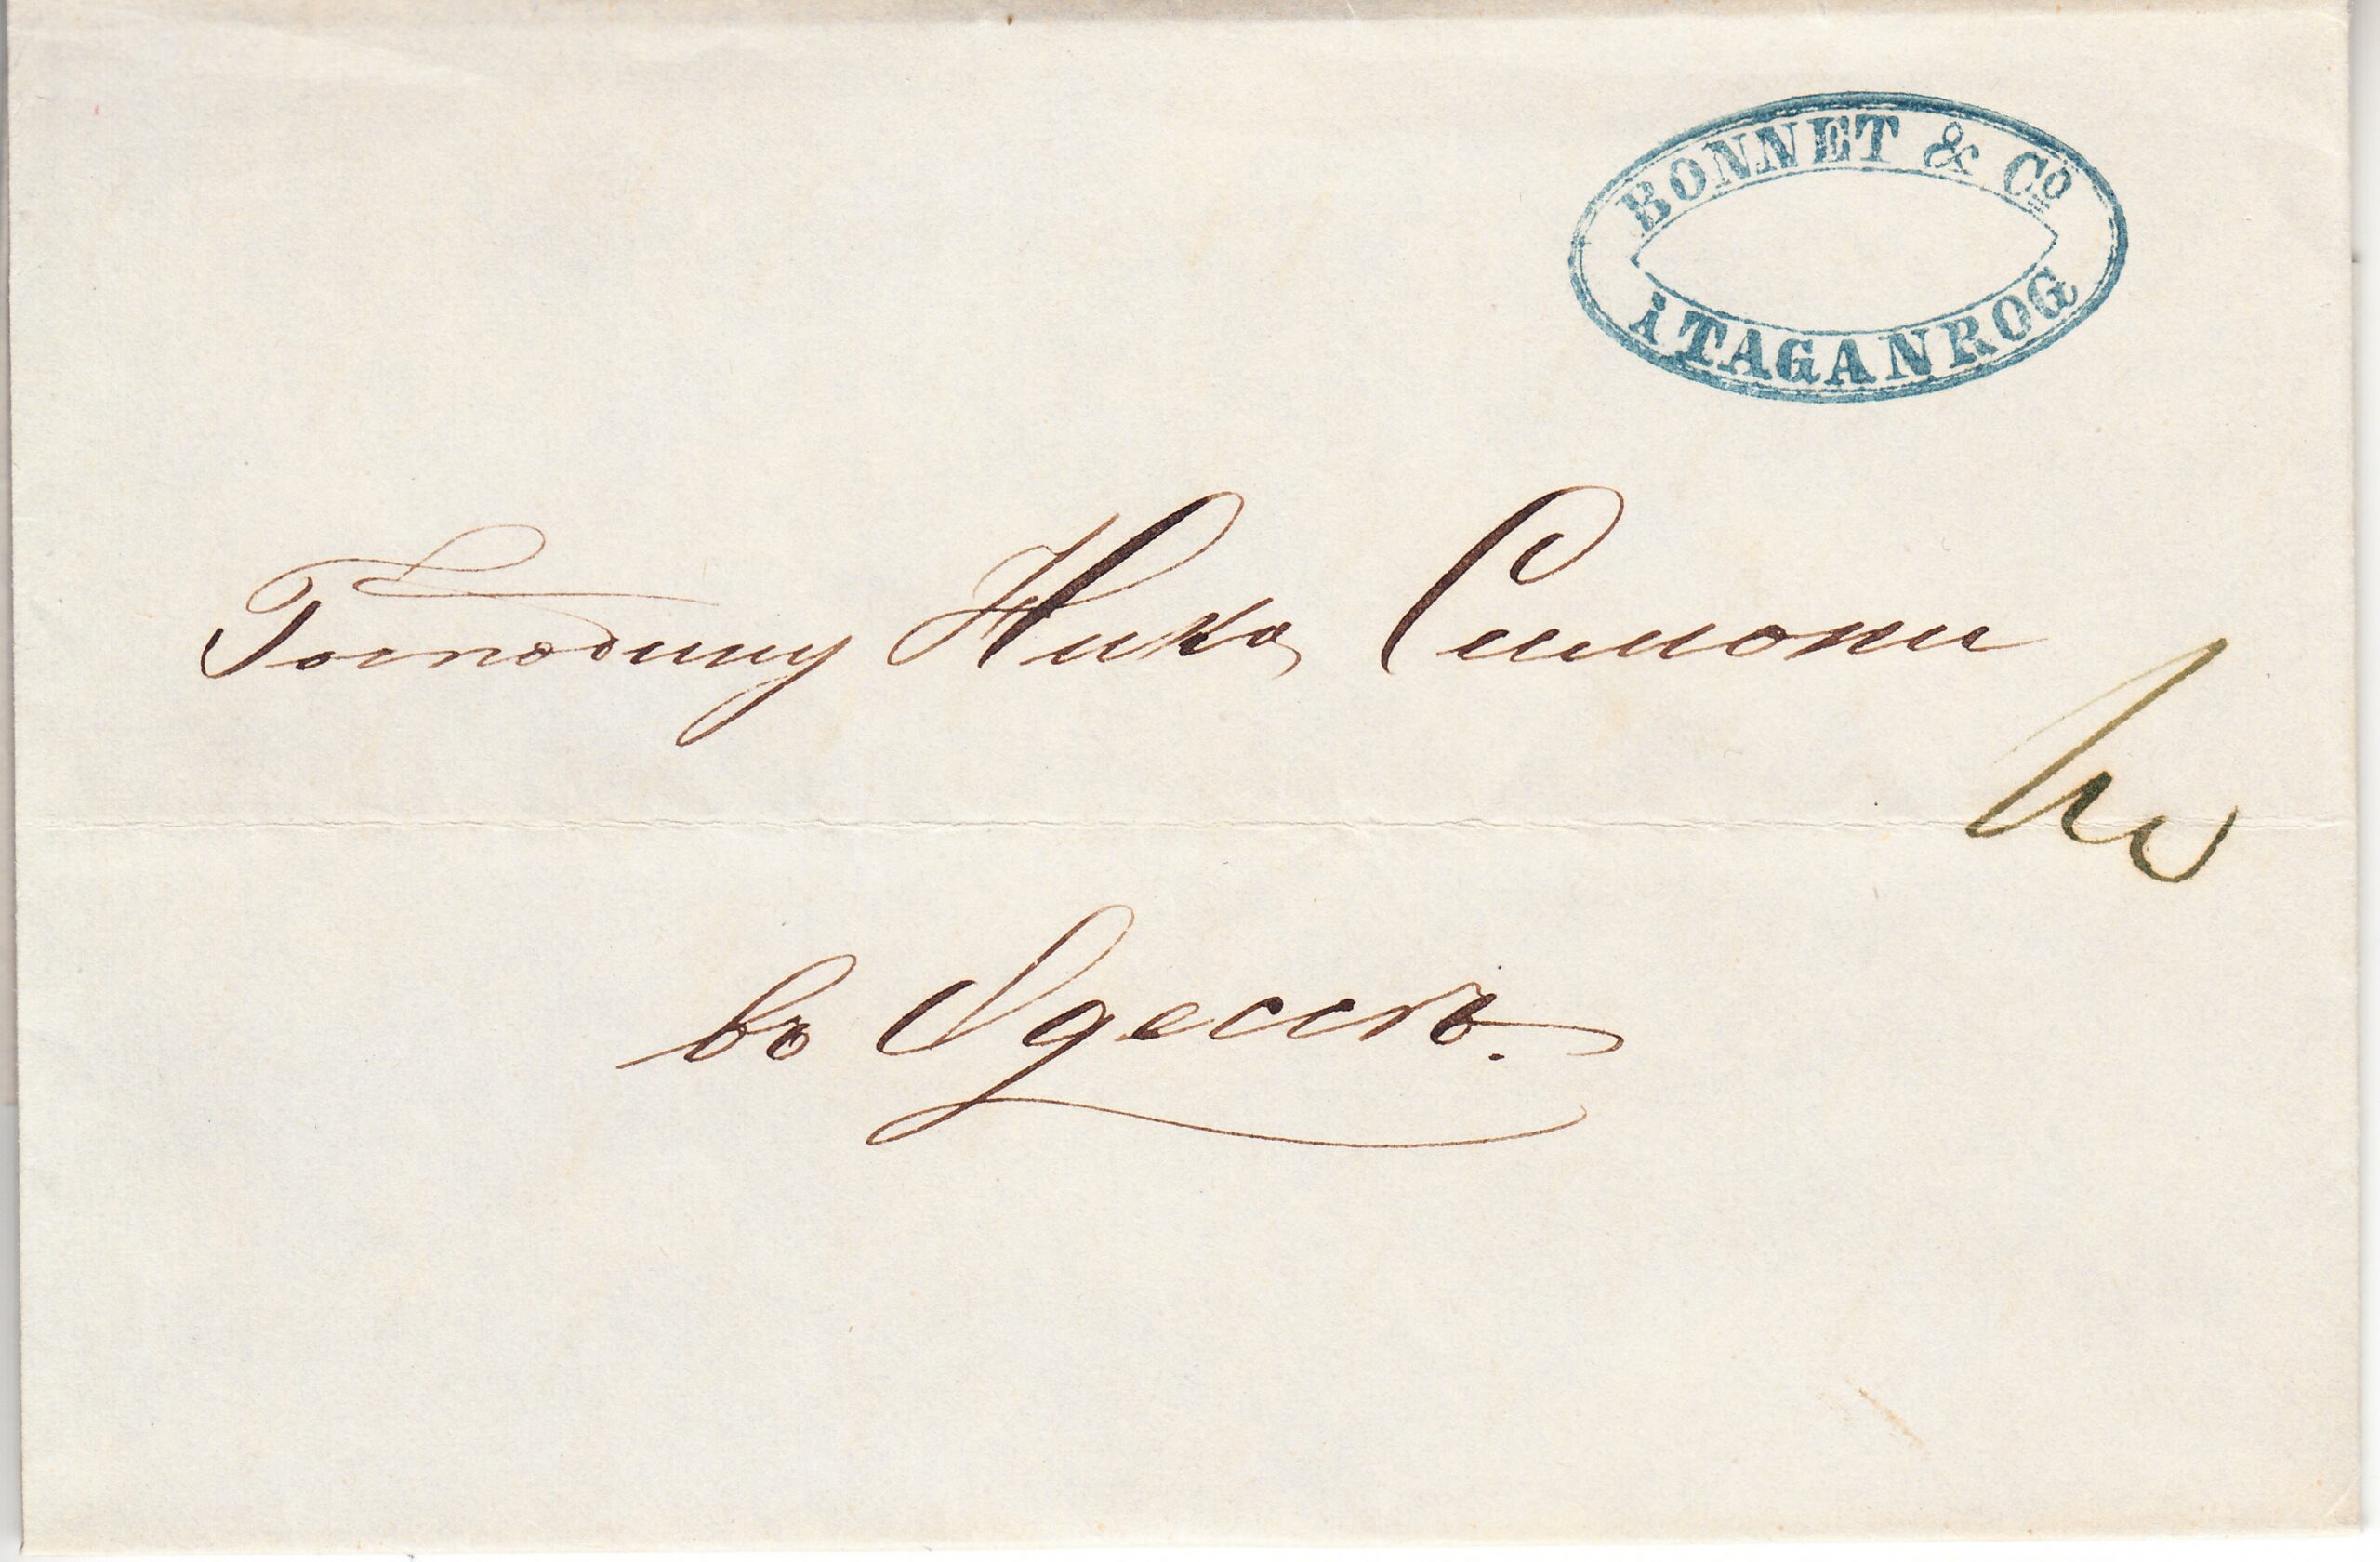 BONNET & Cº
À TAGANROG
Господину Нико Симони
въ Одессѣ.